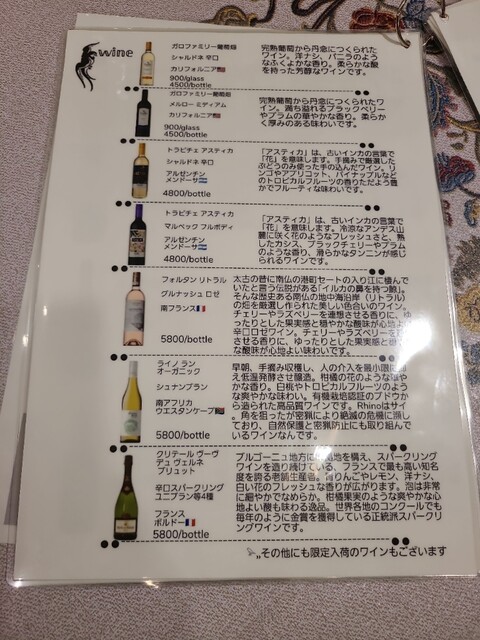 wine
ガロファミリー葡萄園
シャルドネ 辛口
カリフォルニア🇺🇸
900/glass
4500/bottle
完熟葡萄から丹念につくられた
ワイン。洋ナシ、バニラのよう
なふくよかな香り。柔らかな酸
を持った芳醇なワインです。
ガロファミリー葡萄園
メルロー ミディアム
カリフォルニア🇺🇸
900/glass
4500/bottle
完熟葡萄から丹念につくられたワ
イン。満ち溢れるブラックベリー
やプラムの華やかな香り。柔らか
く厚みのある味わいです。
トラピチェ アスティカ
シャルドネ 辛口
アルゼンチン
メンドーサ🇦🇷
4800/bottle
「アスティカ」は、古いインカの言葉で
「花」を意味します。手摘みで厳選した
ぶどうのみ使った手の込んだワイン。リ
ンゴやアプリコット、パイナップルなど
のトロピカルフルーツの香りただよう豊
かでフルーティな味わいです。
トラピチェ アスティカ
マルベック フルボディ
アルゼンチン
メンドーサ🇦🇷
4800/bottle
「アスティカ」は、古いインカの言葉で
「花」を意味します。冷涼なアンデス山
麓に咲く花のようなフレッシュさと、熟
したカシス、ブラックチェリーやプラム
のような香り、滑らかなタンニンが感じ
られるワインです。
フォルタン リトラル
グルナッシュ ロゼ
南フランス🇫🇷
5800/bottle
太古の昔に南仏の港町セートの入り江に棲んで
いたと言う伝説がある「イルカの鼻を持つ鯨」。
そんな歴史ある南仏の地中海沿岸（リトラル）
の畑を厳選し作られた美しい色合いのワイン。
チェリーやラズベリーを連想させる香りに、ゆ
ったりとした果実感と穏やかな酸味が心地よい
辛口ロゼワイン。チェリーやラズベリーを
させる香りに、ゆったりとした果実感と穏
な酸味が心地よい味わいです。
ライノ ラン
オーガニック
シュナンブラン
南アフリカ
ウエスタンケープ🇿🇦
5800/bottle
早朝、手摘み収穫し、人の介入を最小限に
え低温発酵させ醸造。柑橘の花のような
かな香り。白桃やトロピカルフルーツのよう
な爽やかな味わい。有機栽培認証のブドウか
ら造られた高品質ワインです。Rhinoはサイ
。角を狙ったが密猟により絶滅の危機に瀕し
ており、自然保護と密猟防止にも取り組んで
いるワインなんです。
クリテール ヴーヴ
デュ ヴェルネ
ブリュット
辛口スパークリング
ユニブラン等4種
フランス
ボルドー🇫🇷
5800/bottle
ブルゴーニュ地方に 地を構え、スパークリング
ワインを造り続けている、フランスで最も高い知名
度を誇る老舗生産者。青りんごやレモン、洋ナシ、
白い花のフレッシュな香りが広がります。泡は非常
に細やかでなめらか。柑橘果実のような爽やかな心
地よい酸も味わる逸品。世界各地のコンクールでも
毎年のように金賞を獲得している正統派スパークリ
ングワインです。
その他にも限定入荷のワインもございます